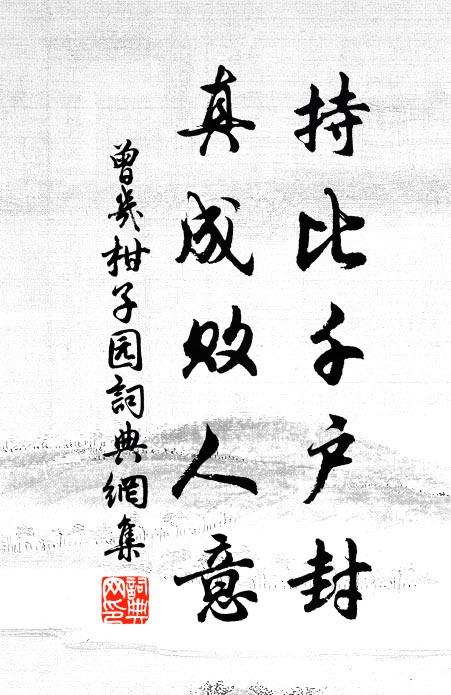 持比千户封
真成败人意
曾几柑子园詞典網集
詞典网印